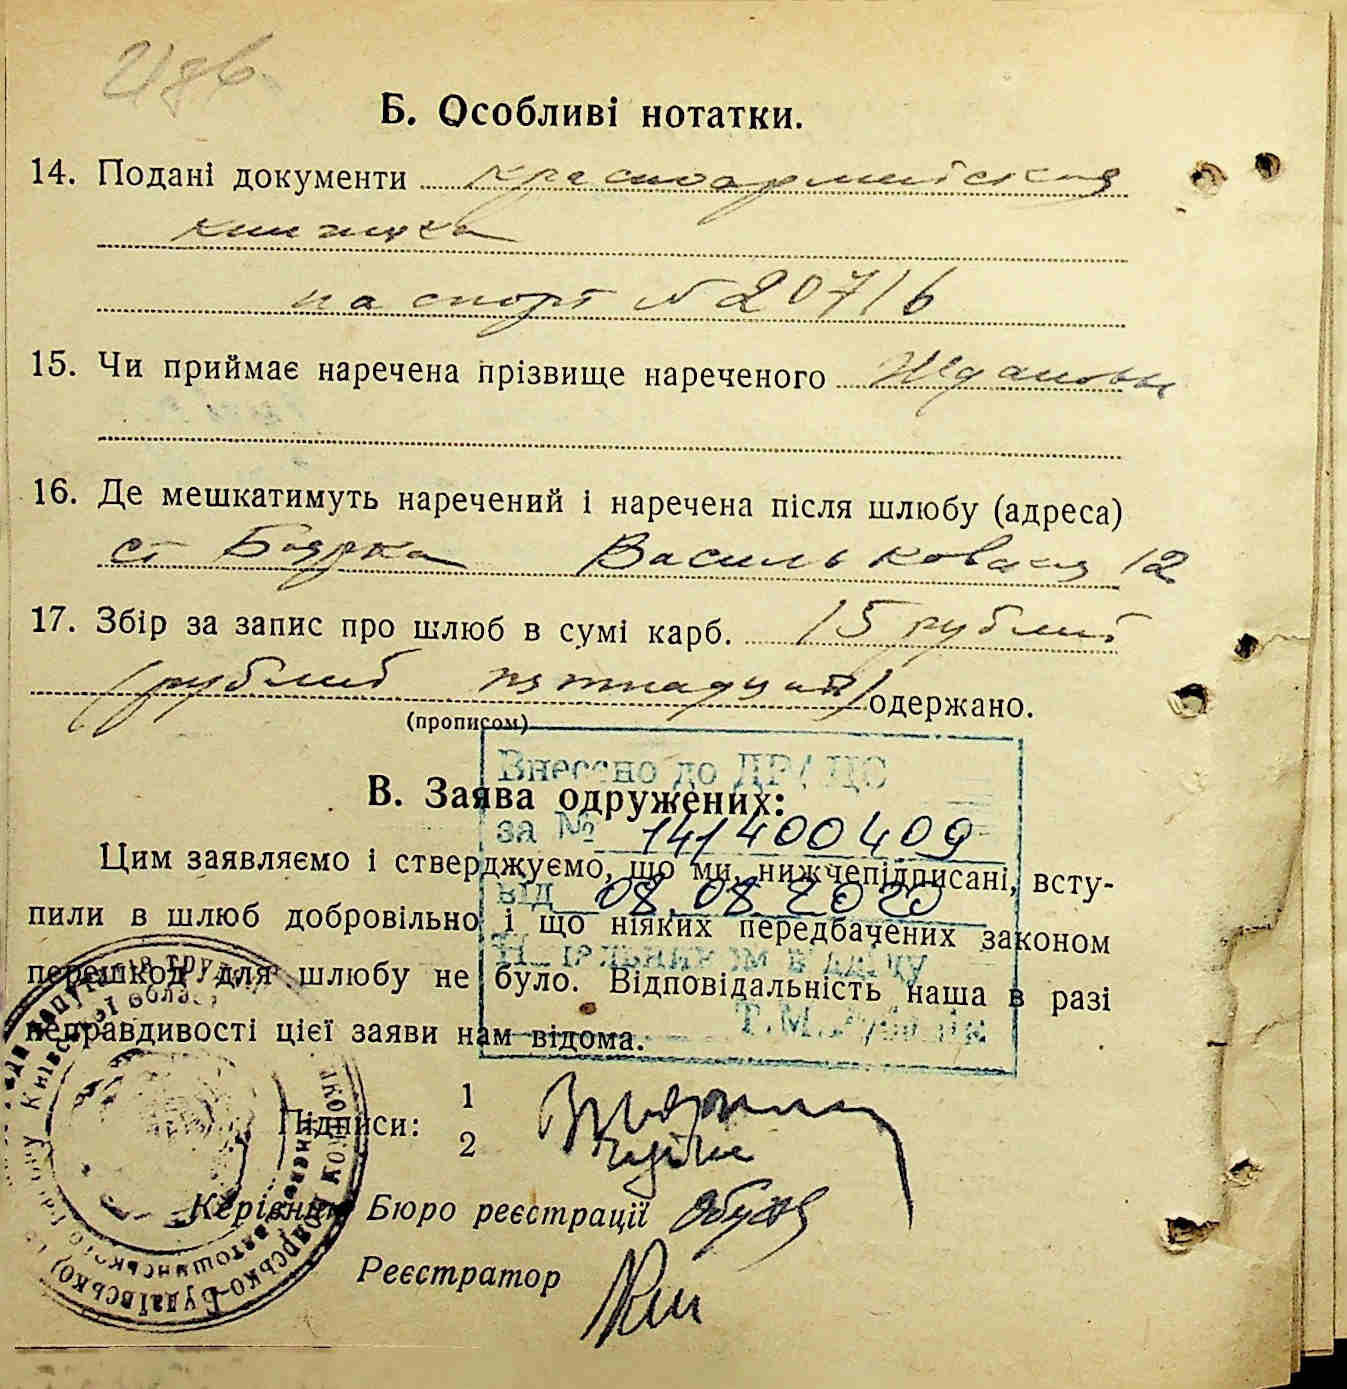 Б. Особливі нотатки.
14. Подані документи красноармейская
книжка
паспорт № 20716
15. Чи приймає наречена прізвище нареченого Ждановы
16. Де мешкатимуть наречений і наречена після шлюбу (адреса)
ст Боярка Васильковская 12
17. Збір за запис про шлюб в сумі карб. 15 рублей
(рублей пятнадцать) одержано.
(прописом)
Внесено до ДРАЦС
В. Заява одружених:
за № 141400409
Цим заявляємо і стверджуємо, що ми, нижчепідписані, всту-
від 08.08.2020
пили в шлюб добровільно і що ніяких передбачених законом
Начальником відділу
перешкод для шлюбу не було. Відповідальність наша в разі
Т.М.
неправдивості цієї заяви нам відома.
Підписи: 1
2
Керівник Бюро реєстрації
Реєстратор